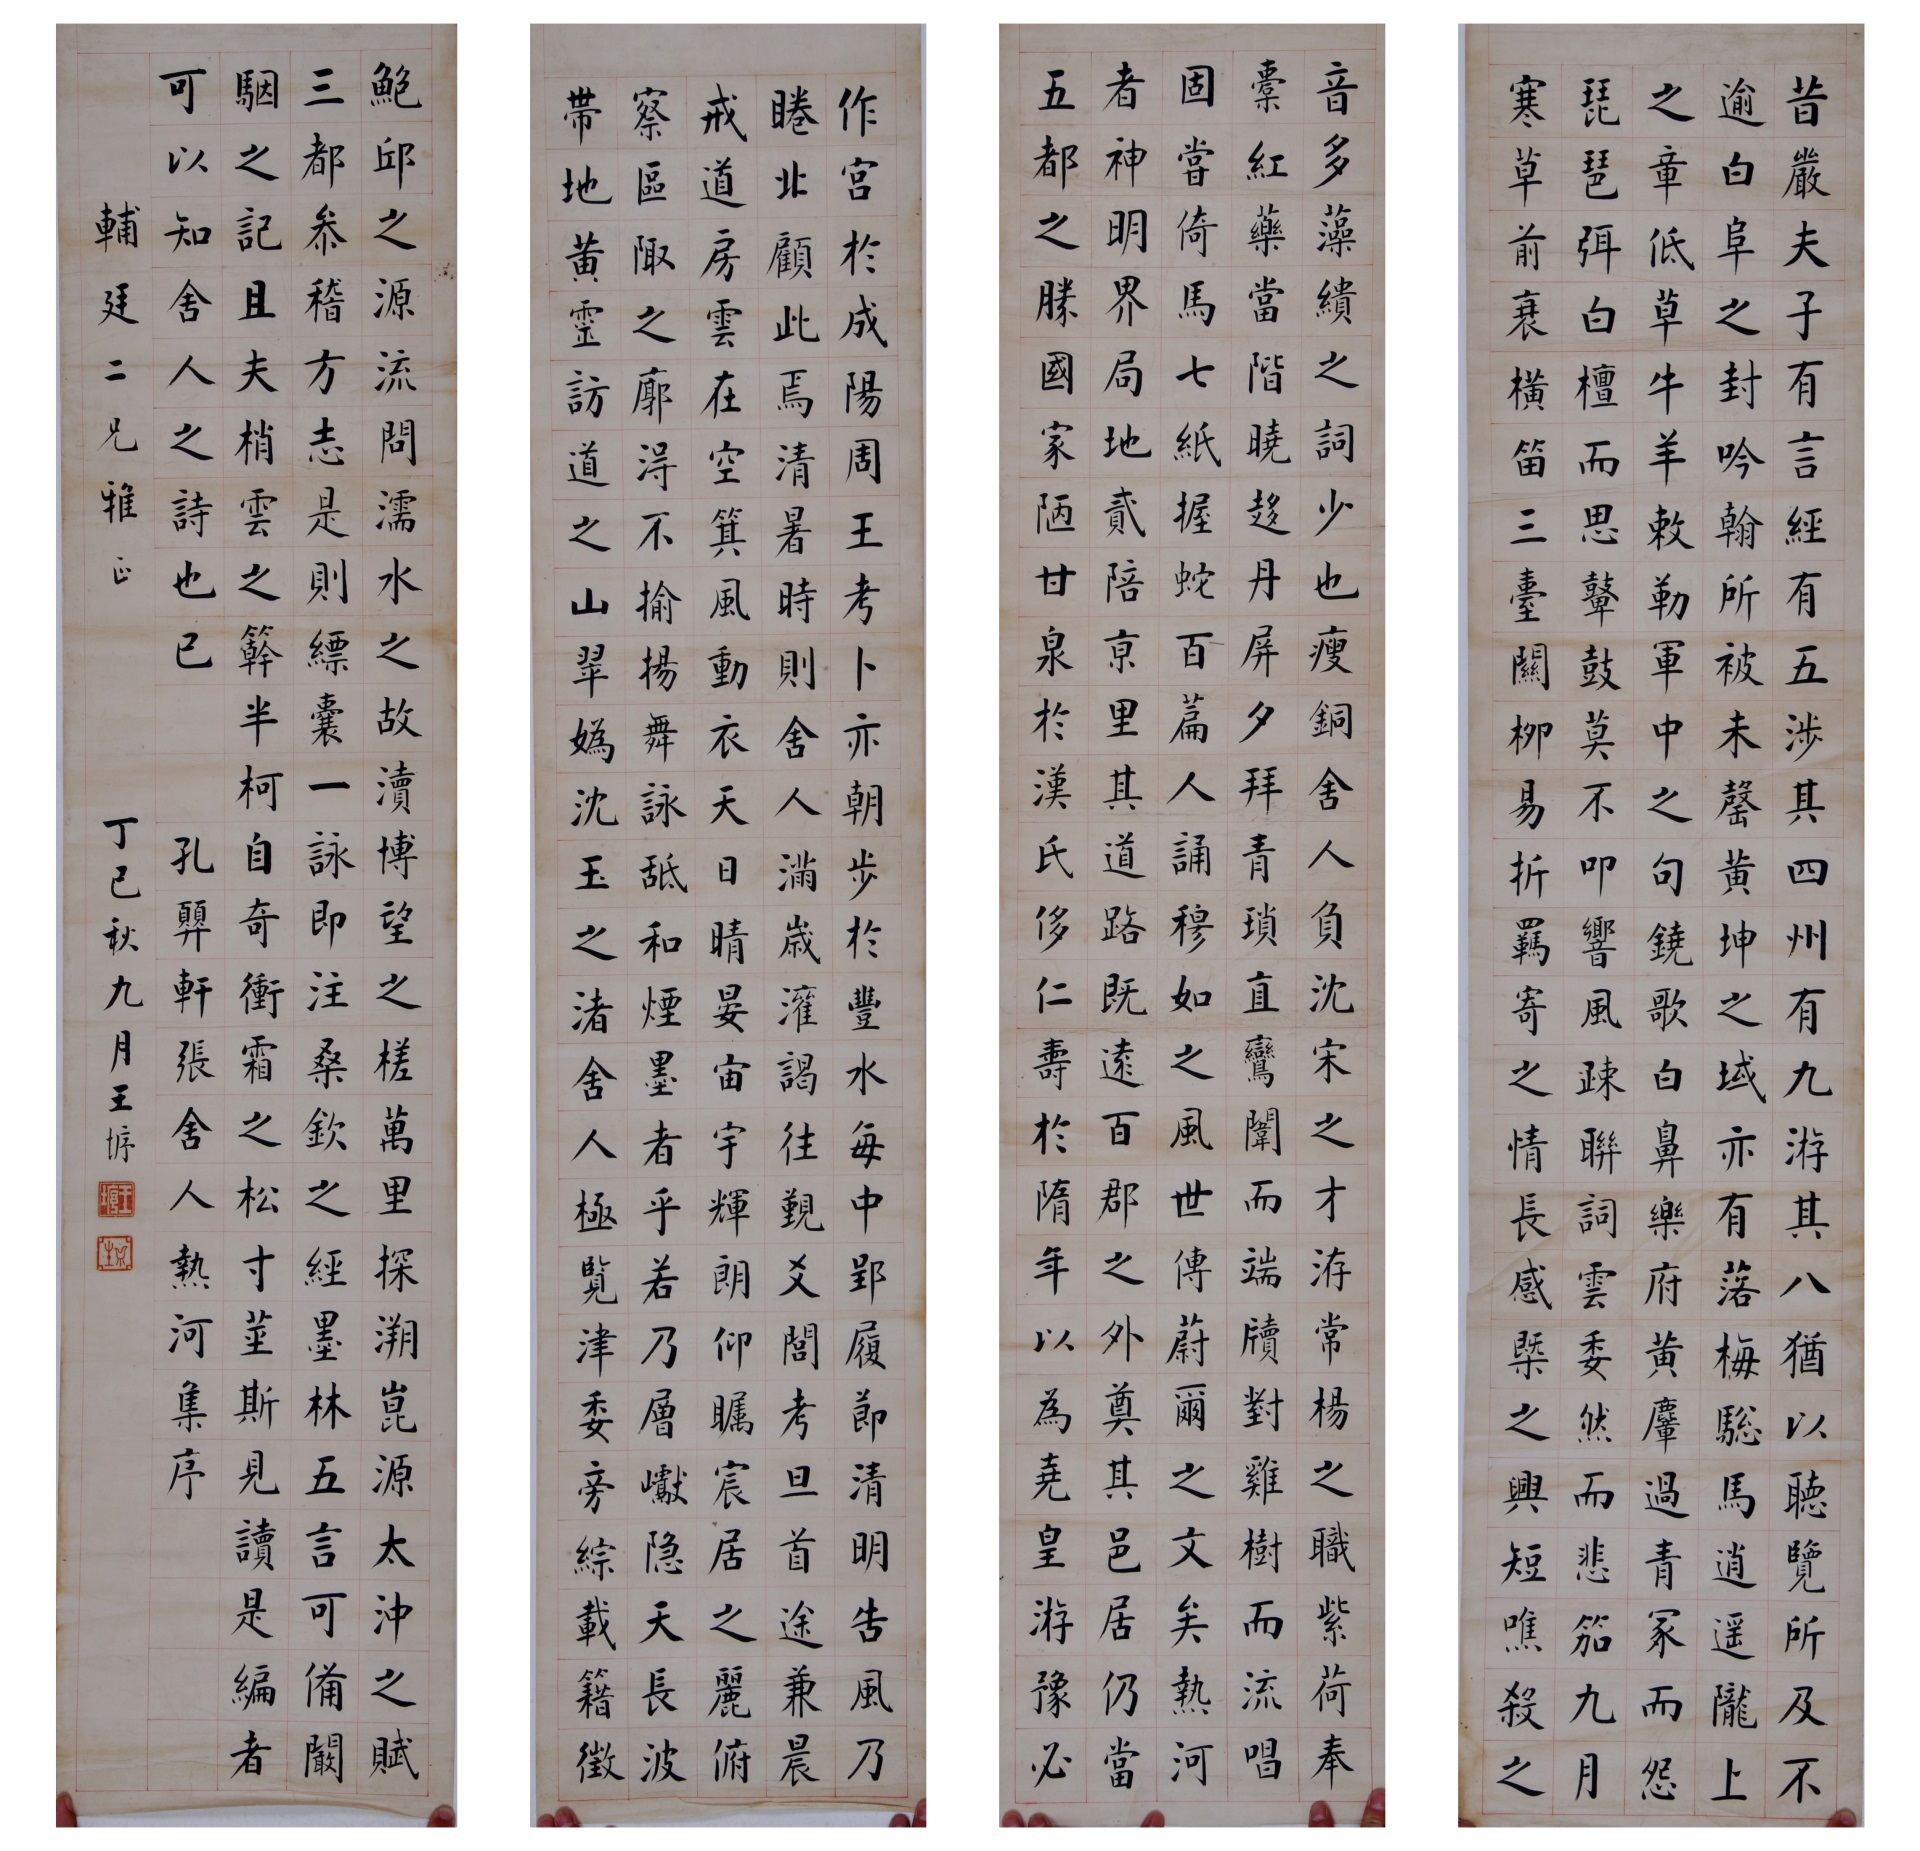 昔嚴夫子有言經有五涉其四州有九游其八猶以聽覽所及不
逾白阜之封吟翰所被未罄黃坤之域亦有落梅驄馬逍遥隴上
之章低草牛羊敕勒軍中之句鐃歌白鼻樂府黃麞過青冢而怨
琵琶弭白檀而思鼙鼓莫不叩響風疎聯詞雲委然而悲笳九月
寒草前衰橫笛三臺關柳易折羈寄之情長感槩之興短噍殺之
音多藻繢之詞少也瘦銅舍人負沈宋之才洊常楊之職紫荷奉
橐紅藥當階曉趍丹屏夕拜青瑣直鸞闈而端牘對雞樹而流唱
固嘗倚馬七紙握蛇百篇人誦穆如之風世傳蔚爾之文矣熱河
者神明界局地貳陪京里其道路既遠百郡之外奠其邑居仍當
五都之勝國家陋甘泉於漢氏侈仁壽於隋年以為堯皇游豫必
作宮於成陽周王考卜亦朝步於豐水每中郢履節清明告風乃
睠北顧此焉清暑時則舍人滿歲灌謁往覲爻閭考旦首途兼晨
戒道房雲在空箕風動衣天日晴晏宙宇輝朗仰矚宸居之麗俯
察區陬之廓淂不揄揚舞詠舐和煙墨者乎若乃層巘隐天長波
帶地黃靈訪道之山翠媯沈玉之渚舍人極覽津委旁綜載籍徵
鮑邱之源流問濡水之故瀆博望之槎萬里探溯崑源太沖之賦
三都叅稽方志是則縹囊一詠即注桑欽之經墨林五言可備闞
駰之記且夫梢雲之簳半柯自奇衝霜之松寸莖斯見讀是編者
可以知舍人之詩也已 孔顨軒張舍人熱河集序
輔廷二兄雅正 丁巳秋九月王垿